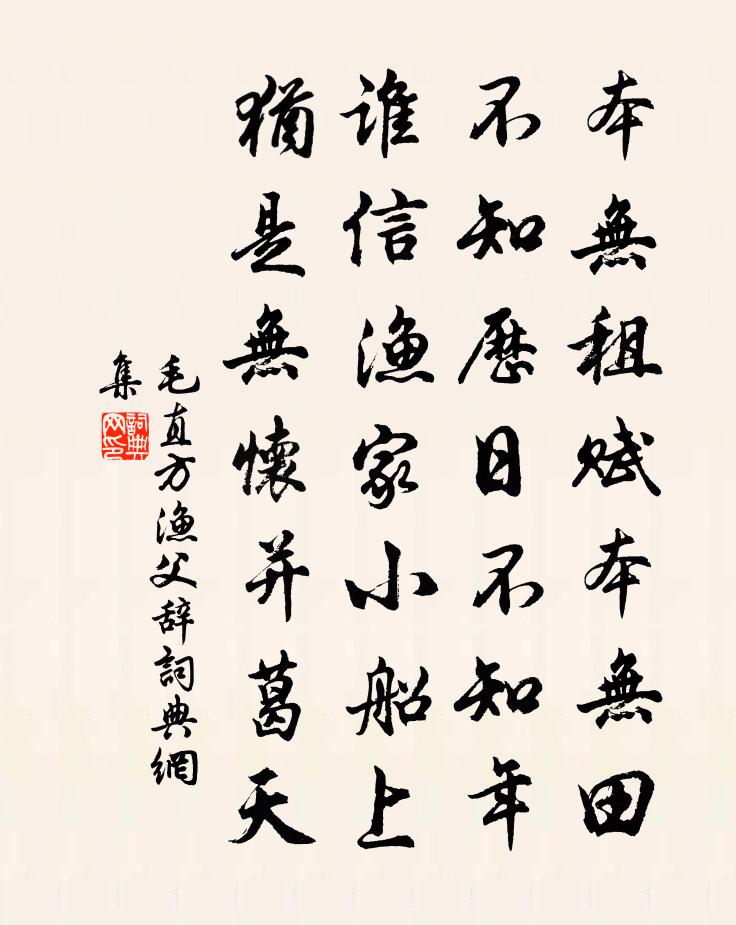 本無租賦本無田
不知曆日不知年
誰信漁家小船上
猶是無懷并葛天
毛直方漁父辞詞典網
集
詞典網印